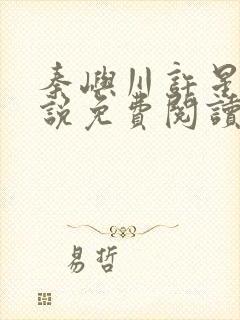 秦嶼川許是
說免費閱讀
易哲